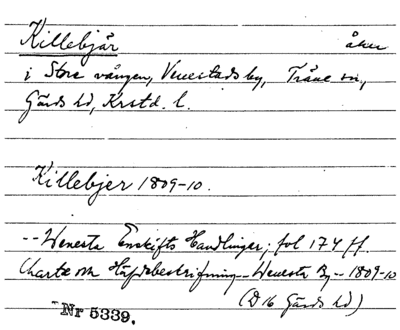 Killebjär åker
i Stora vången, Venestads by, Träne sn,
Gärds hd, Krstd. l.
Killebjer 1809-10.
-- Wenesta Enskifts Handlingar; fol 174 ff.
Charta och Häfdebeskrifning -- Wenesta By -- 1809-10
(D 16 Gärds hd)
Nr 5339.